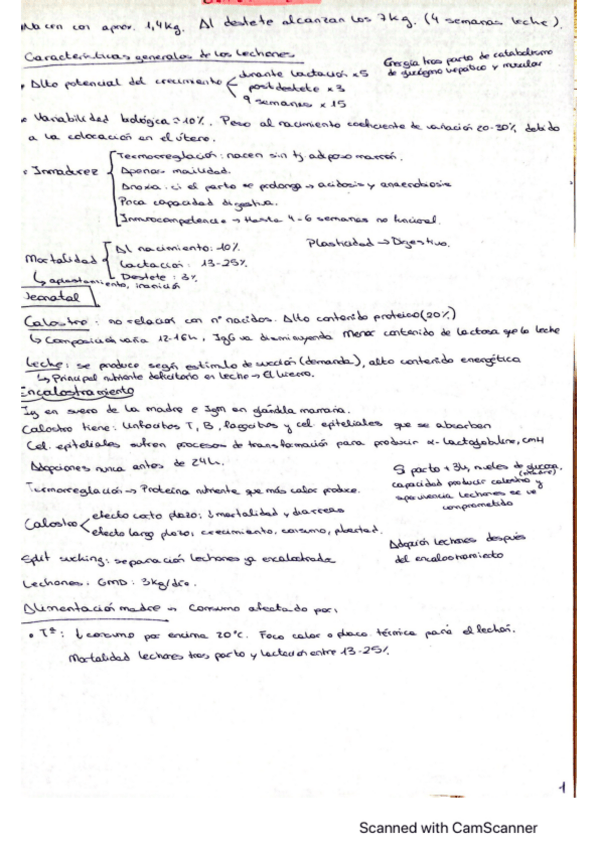 Nacen con aprox. 1,4kg. Al destete alcanzan los 7kg. (4 semanas leche).
Características generales de los lechones
Energía tras parto de catabolismo
de glucógeno hepático y muscular
• Alto potencial del crecimiento
durante lactación x5
postdestete x3
9 semanas x 15
• Variabilidad biológica = 10%. Peso al nacimiento coeficiente de variación 20-30% debido
a la colocación en el útero.
• Inmadurez
Termorregulación: nacen sin tj. adiposo marrón.
Apenas movilidad.
Anoxia: si el parto se prolonga → acidosis y anaerobiosis
Poca capacidad digestiva.
Inmunocompetencia → Hasta 4-6 semanas no funcional.
Mortalidad
Al nacimiento: 10%
Lactación: 13-25%
Destete: 3%
Plasticidad → Digestivo.
↳ aplastamiento, inanición
Neonatal
Calostro: no relación con nº nacidos. Alto contenido proteico (20%)
↳ Composición varía 12-16h, IgG va disminuyendo Menor contenido de lactosa que la leche
Leche: se produce según estímulo de succión (demanda), alto contenido energética
↳ Principal nutriente deficitario en leche → El hierro.
Encalostramiento
Ig en suero de la madre e IgM en glándula mamaria.
Calostro tiene: linfocitos T, B, fagocitos y cel. epiteliales que se absorben
Cel. epiteliales sufren procesos de transformación para producir α-lactoglobuline, CMH
Adopciones nunca antes de 24h.
Si parto + 3h, niveles de glucosa
capacidad producir calostro y
supervivencia lechones se ve
comprometido
Termorregulación → Proteína nutriente que más calor produce.
Calostro
efecto corto plazo: ↓ mortalidad y diarreas
efecto largo plazo: crecimiento, consumo, pubertad.
Adopción lechones después
del encalostramiento
Split suckling: separación lechones ya encalostrados
Lechones: GMD: 3kg/día.
Alimentación madre → Consumo afectado por:
• Tª: ↓ consumo por encima 20ºC. Foco calor o placa térmica para el lechón.
Mortalidad lechones tras parto y lactación entre 13-25%.
1
Scanned with CamScanner